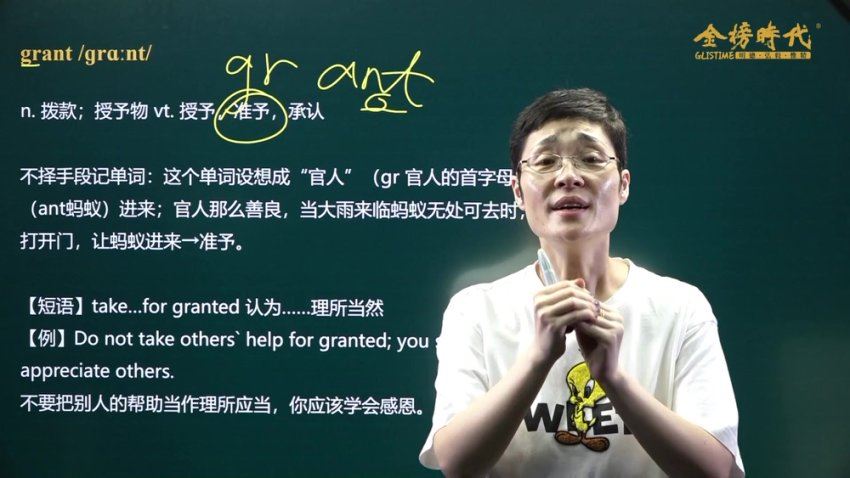 金榜時代®
GLISTIME 明德·弘毅·惟勤
grant /ɡrɑːnt/
gr ant
n. 拨款；授予物 vt. 授予，准予，承认
不择手段记单词：这个单词设想成“官人”（gr 官人的首字母
（ant蚂蚁）进来；官人那么善良，当大雨来临蚂蚁无处可去时，
打开门，让蚂蚁进来→准予。
【短语】take...for granted 认为......理所当然
【例】Do not take others` help for granted; you
appreciate others.
不要把别人的帮助当作理所应当，你应该学会感恩。